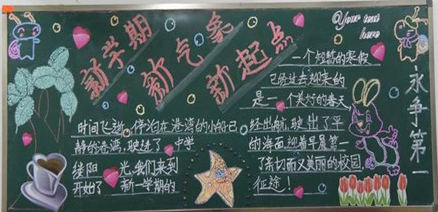 新学期
新气象
新起点
Your text
here
一个短暂的寒假
已经过去迎来的
是一个美好的春天
永争第一
时间飞逝,停泊在港湾的小船已经出航,驶出了平
静的港湾,驶进了
的海面迎着早晨第一
缕阳光,我们来到
了亲切而又美丽的校园
开始了新一学期的
征途!